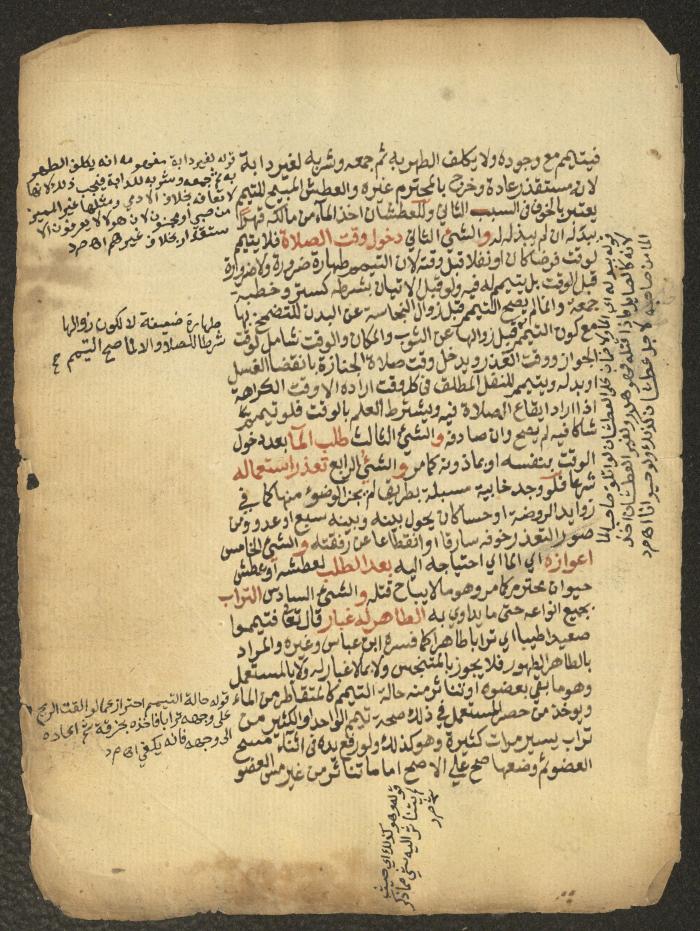 فيتيمم مع وجوده ولا يكلف الطهر به ثم جمعه وشربه لغير دابة
لانه مستقذر عادة وخرج بالمحترم غيره والعطش المبيح للتيمم
يعتبر بالخوف في السبب الثاني وللعطشان اخذ الماء من مالكه قهرا
ببدله ان لم يبذله له والشئ الثاني دخول وقت الصلاة فلا يتيمم
لوقت فرضا كان او نفلا قبل وقته لان التيمم طهارة ضرورة ولا ضرورة
قبل الوقت بل يتيمم له فيه ولو قبل الاتيان بشرطه كستر وخطبة
جمعة وانما لم يصح التيمم قبل زوال النجاسة عن البدن للتضمخ بها
مع كون التيمم قبل زوالها عن الثوب والمكان والوقت شامل لوقت
الجواز ووقت العذر ويدخل وقت صلاة الجنازة بانقضا الغسل
او بدله ويتيمم للنفل المطلق في كل وقت اراده الا وقت الكراهة
اذا اراد ايقاع الصلاة فيه ويشترط العلم بالوقت فلو تيمم
شاكا فيه لم يصح وان صادفه والشئ الثالث طلب الماء بعد دخول
الوقت بنفسه او بماذونه كما مر والشئ الرابع تعذر استعماله
شرعا فلو وجد خابية مسبلة بطريق لم يجز الوضوء منها كما في
زوايد الروضة او حسا كان يحول بينه وبينه سبع او عدو ومن
صور التعذر خوفه سارقا او انقطاعا عن رفقته والشئ الخامس
اعوازه اي الماء اي احتياجه اليه بعد الطلب لعطشه او عطش
حيوان محترم كما مر وهو ما لا يباح قتله والشئ السادس التراب
بجميع انواعه حتى ما يداوي به الطاهر له غبار قال تعالى فتيمموا
صعيدا طيبا اي ترابا طاهرا كما فسره ابن عباس وغيره والمراد
بالطاهر الطهور فلا يجوز بالمتنجس ولا بما لا غبار له ولا بالمستعمل
وهو ما بقي بعضوه او تناثر منه حالة التيمم كالمتقاطر من الماء
ويوخذ من حصر المستعمل في ذلك صحة تيمم الواحد او الكثير من
تراب يسير مرات كثيرة وهو كذلك ولو رفع يده في اثناء مسح
العضو ثم وضعها صح على الاصح اما ما تناثر من غير مس العضو
قوله لغير دابة مفهومه انه يكلف الطهر
به ثم جمعه وشربه للدابة فيجب ذلك لانها
لا تعافه بخلاف الادمي ومثلها غير المميز
من صبي او مجنون لان هولا لا يعرفون الا
ستقذار بخلاف غيرهم اه م د
طهارة ضعيفة لا لكون زوالها
شرطا للصلاة والا لما صح التيمم
قوله حالة التيمم احترازا عما لو القت الريح
على وجهه ترابا فاخذه بخرقة ثم اعاده
الى وجهه فانه يكفي اه م د